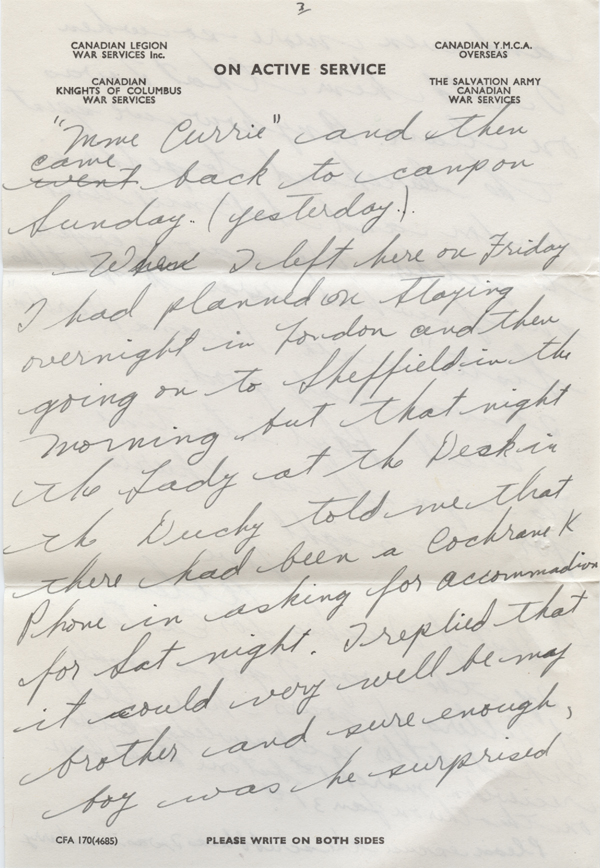 3
CANADIAN LEGION
WAR SERVICES Inc.
CANADIAN
KNIGHTS OF COLUMBUS
WAR SERVICES
ON ACTIVE SERVICE
CANADIAN Y.M.C.A.
OVERSEAS
THE SALVATION ARMY
CANADIAN
WAR SERVICES
"Mme Currie" and then
came
went back to camp on
Sunday. (yesterday.).
—When I left here on Friday
I had planned on staying
overnight in London and then
going on to Sheffield in the
morning but that night
the Lady at the Desk in
the Duchy told me that
there had been a Cochrane K
Phone in asking for accommadion
for Sat night. I replied that
it could very well be my
brother and sure enough,
boy was he surprised
CFA 170(4685)
PLEASE WRITE ON BOTH SIDES